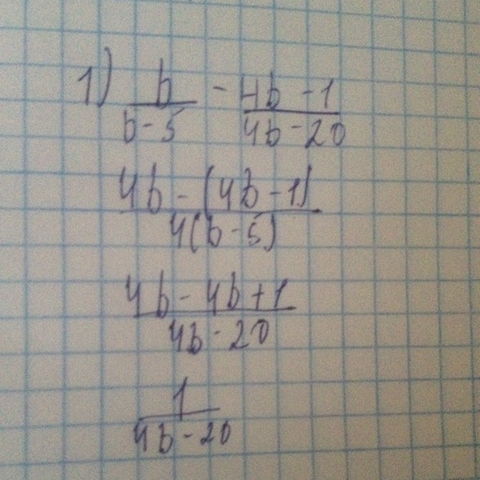 1) b/(b-5) - (4b-1)/(4b-20)
(4b-(4b-1))/(4(b-5))
(4b-4b+1)/(4b-20)
1/(4b-20)